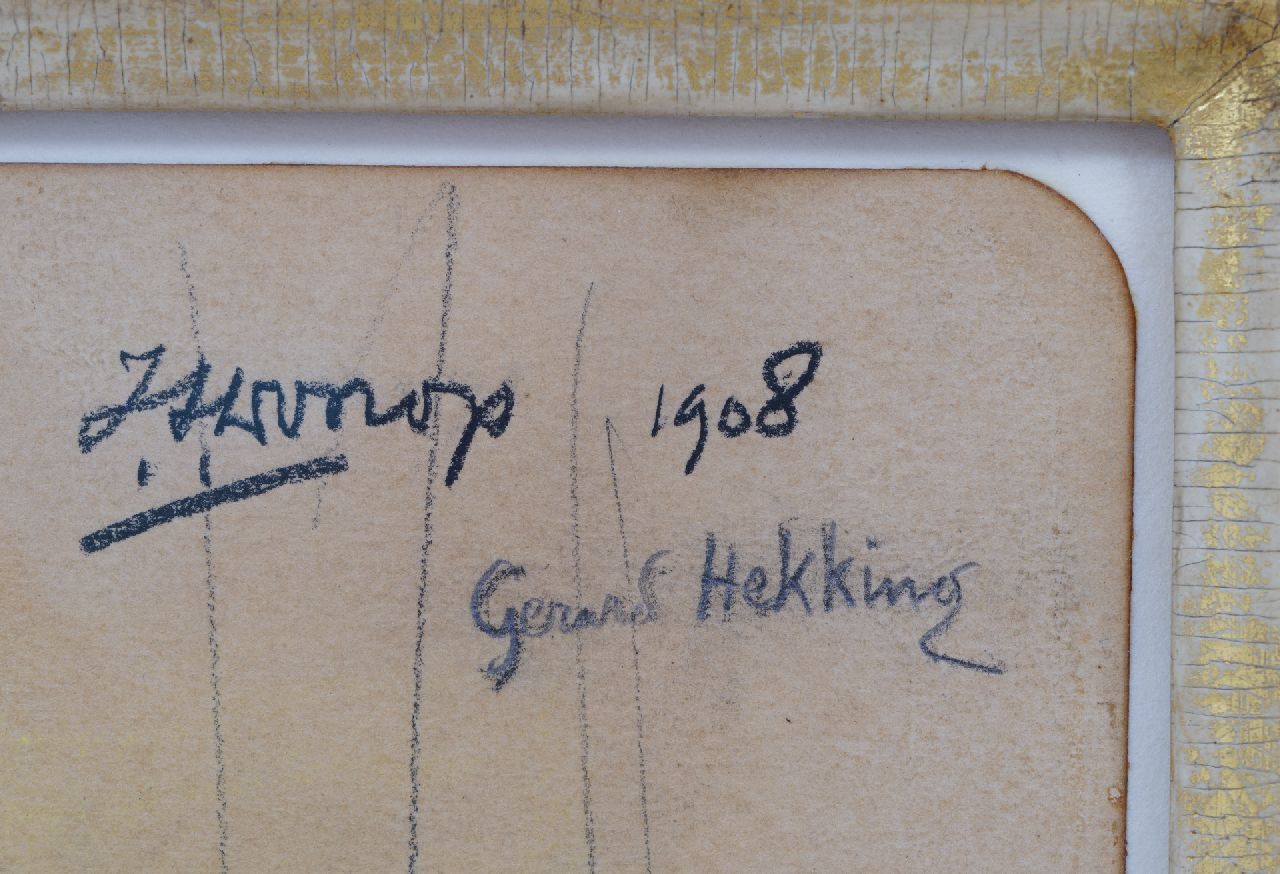 J.Th.Toorop 1908
Gerard Hekking